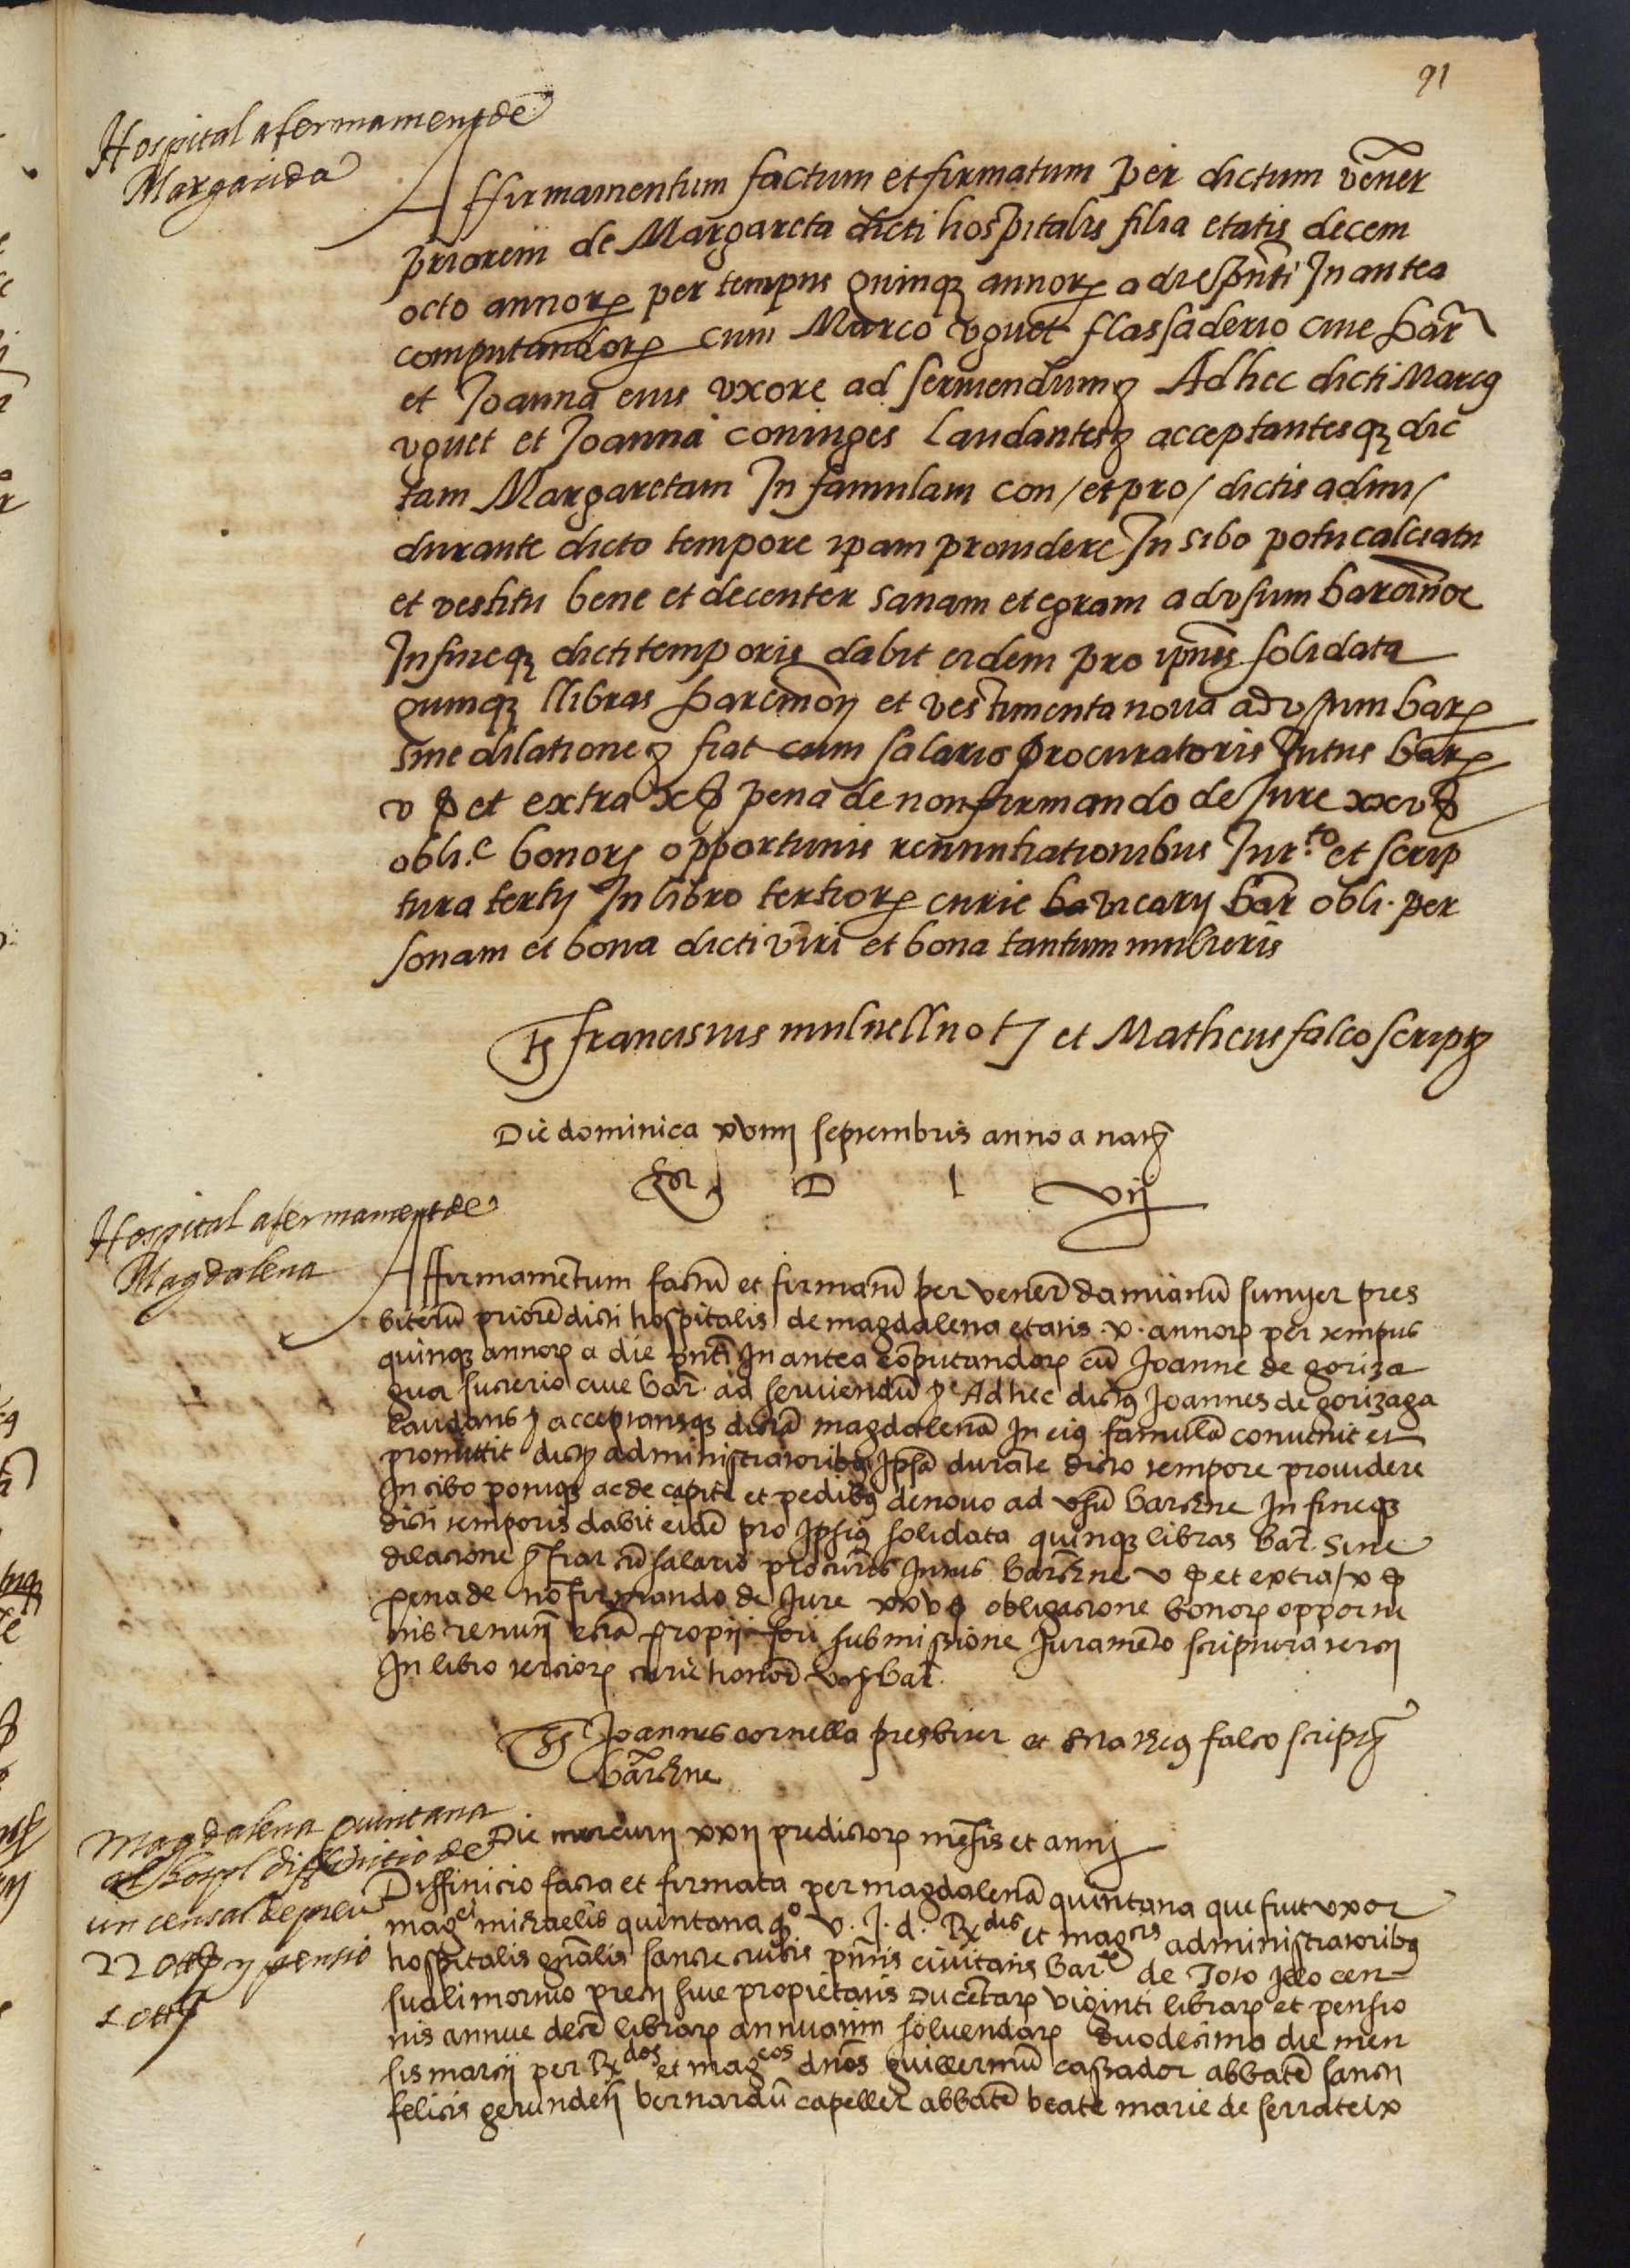 91
Hospital afermament de
Margarida
Affirmamentum factum et firmatum per dictum vener
priorem de Margareta dicti hospitalis filia etatis decem
octo annorꝝ per tempus quinqꝫ annorꝝ a die pñti In antea
computandorꝝ cum Marco vguet flassaderio ciue bar̃
et Joanna eius vxore ad seruiendumꝫ Ad hec dicti Marcꝰ
vguet et Joanna coniuges Laudantesꝫ acceptantesqꝫ dic
tam Margaretam In famulam con / et pro / dictis admi /
durante dicto tempore ipam prouidere In sibo potu calciatu
et vestitu bene et decenter sanam et egram ad vsum barcinõe
In fineqꝫ dicti temporis dabit eidem pro ipiũs solidata
quinqꝫ llibras barcinoñ et vestimenta noua ad vsum barꝝ
sine dilationeꝫ fiat cum salario procuratoris Intus barꝝ
v ꝭ et extra x ꝭ pena de non firmando de Jure xxv ꝭ
obli.e bonorꝝ opportunis renuntiationibus Jur.to et scrip
tura tertij In libro tertiorꝝ curie ba vicarij bar̃ obli. per
sonam et bona dicti viri et bona tantum mulieris
tꝭ franciscus mulnell notꝭ et Matheus falco scriptꝭ
Die dominica xviiij septembris anno a natꝭ
D L vij
Hospital afermament de
Magdalena
Affirmamentum factũ et firmatũ per venerẽ damianũ sunyer pres
biterũ priorẽ dicti hospitalis de magdalena etatis .x. annorꝝ per tempus
quinqꝫ annorꝝ a die pñti In antea cõputandorꝝ cũ Joanne de goriza
gua sucrerio ciue bar̃. ad seruiendũ ꝫc Ad hec dictꝰ Joannes de gorizaga
laudans ꝫ acceptansqꝫ dictã magdalenã In eiꝰ famulã conuenit et
promittit dictꝭ administratoribꝰ Ipsã durãte dicto tempore prouidere
In cibo potuqꝫ ac de capite et pedibꝰ denouo ad vsũ barchne In fineqꝫ
dicti temporis dabit eidẽ pro Ipsiꝰ solidata quinqꝫ libras bar̃. sine
dilacione ꝫ fiat cũ salario procurris Intus barchne v ꝭ et extra / x ꝭ
pena de nõ firmando de Jure xxv ꝭ obligacione bonorꝝ opportu
nis renuñ etiã proprij fori submissione Juramẽto scriptura tercij
In libro terciorꝝ curie honorẽ vczbar̃.
tꝭ Joannes cornella presbiter et Matheꝰ falco scriptꝭ
barchne
Die mercurij xxij predictorꝝ mẽsis et anni
Magdalena quintana
al hospl diffinitio de
un censal de preu
220 ₶ y pensio
10 ₶
Diffinicio facta et firmata per magdalenã quintana que fuit vxor
mag.ci michaelis quintana qº v. J. d. Rx.dis et mag.cis administratoribꝰ
hospitalis gñalis sancte crucis pñtis ciuitatis bar.e de Toto Jllo cen-
suali mortuo precij siue proprietatis ducẽtarꝝ viginti librarꝝ et pensio
nis annue decẽ librarꝝ annuatim soluendarꝝ duodecima die men
sis marcij per Rx.dos et mag.cos dños guillermũ cassador abbatẽ sancti
felicis gerundeñ bernardũ capeller abbatẽ beate marie de serrateix